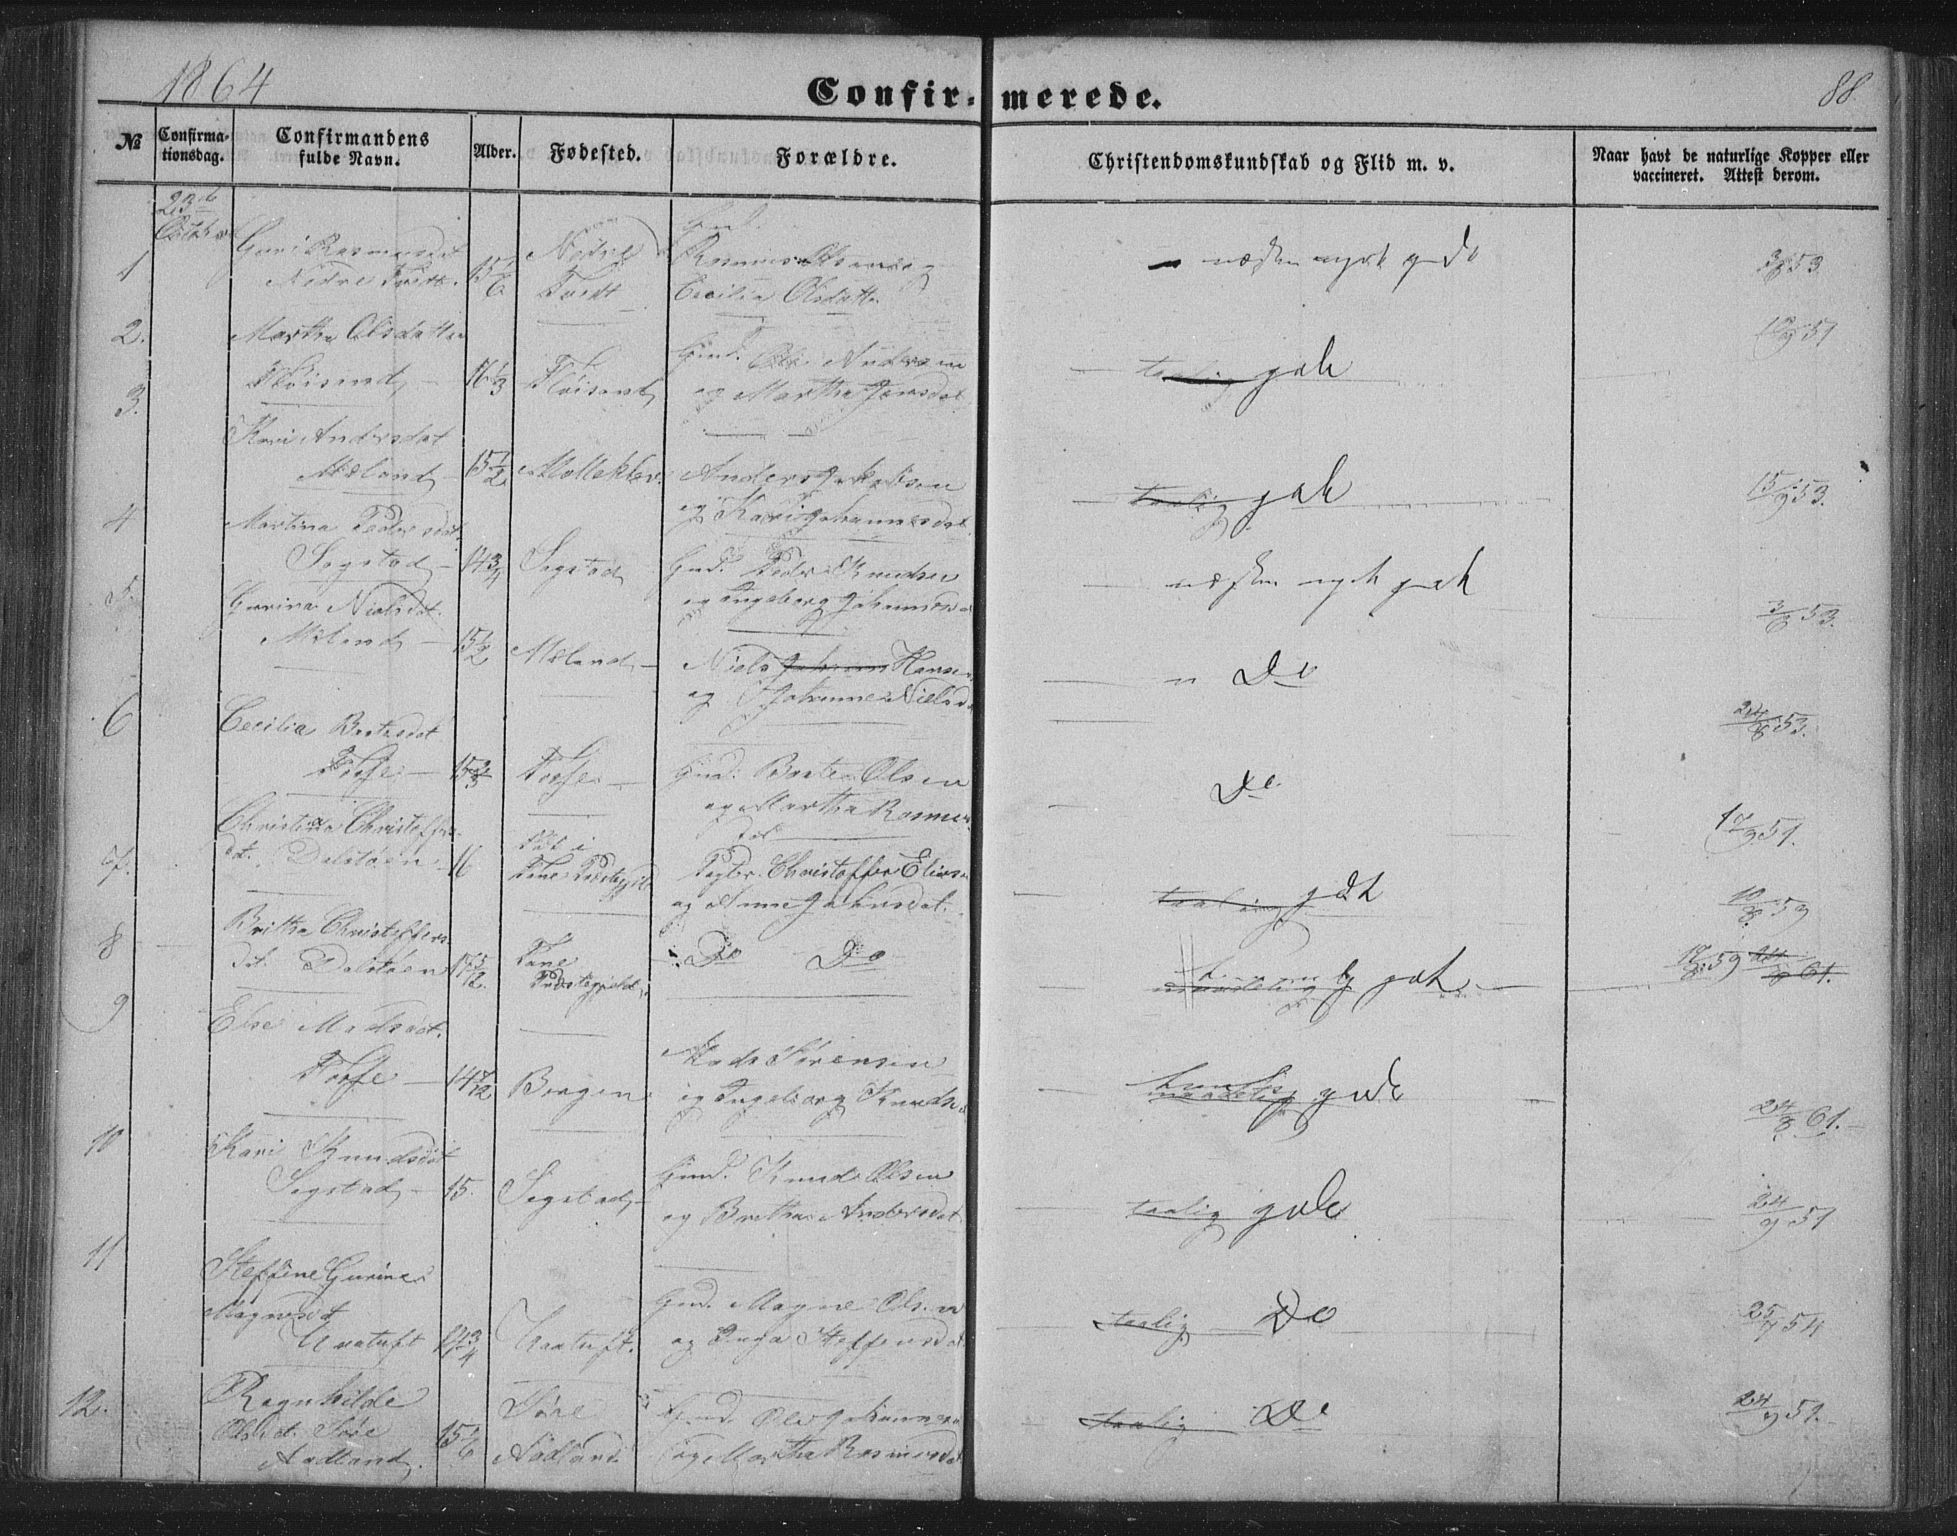 1864
Confir- merede.
88
№
Confirma-
tionsdag.
Confirmandens
fulde Navn.
Alder.
Fødested.
Forældre.
Christendomskundskab og Flid m. v.
Naar havt de naturlige Kopper eller
vaccineret. Attest derom.
23
October
1
Guri Rasmusdat
Nedre Tvedt.
15 1/6
Nedre
Tvedt
Gmd.
Rasmus Olsen og
Cecilia Olsdatter
næsten meget gode
3/8 53.
2.
Martha Olsdatter
Fløisand
16 1/3
Fløisand
Gmd. Ole Andersen
og Martha Jensdat
taalig godt
51
3.
Kari Andersdat
Mæland
15 1/2
Anders Jakobsen
og Kari Johannesdat
taalig godt
15/9 53.
4
Martina Pedersdat.
Sogstad
14 3/4
Sogstad
Gmd. Peder Knudsen
og Ingeborg Johannesdat
næsten meget godt
3/8 53.
5.
Gurina Nielsdat.
Mæland
15 1/2
Mæland
Niels Hansen
og Johanne Nielsd
" Do
24/8 53.
6
Cecilia Brotesdat
Fosse
15 2/3
Fosse
Gmd. Brote Olsen
og Martha Rasmus
dat
Do
51.
7.
Christina Christoffers
dat. Dalstøen
16
Fane Præstegjeld
Christoffer Eliasen
og Anne Johnsdat.
taalig godt
10/8 59
8
Britha Christoffers
dat. Dalstøen
17 5/12.
Fane
Præstegjeld
Do Do
godt
59 24/8 61.
9
Else Madsdat.
Fosse
14 7/12
Bergen
Mads Sørensen
og Ingeborg Knudsd
gode
24/8 61.
10
Kari Knudsdat
Sogstad
15.
Sogstad
Gmd. Knud Olsen
og Britha Andersdat
taalig gode
24/9 51
11
Steffine Gurine
Magnesdat
Uratuft
14 3/4
Uratuft.
Gmd. Magne Olsen
og Inga Steffensdat
taalig Do
25/7 54
12.
Ragnhilde
Olsdt. Søre
Aadland.
15 1/6
Søre
Aadland
Gmd. Ole Johannesen
og Martha Rasmusdat
taalig Do
24/9 51.